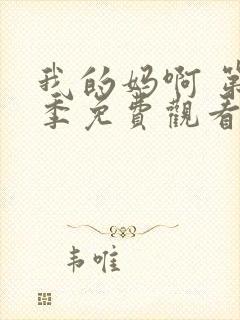 我的妈啊 第
季免費觀看
韦唯